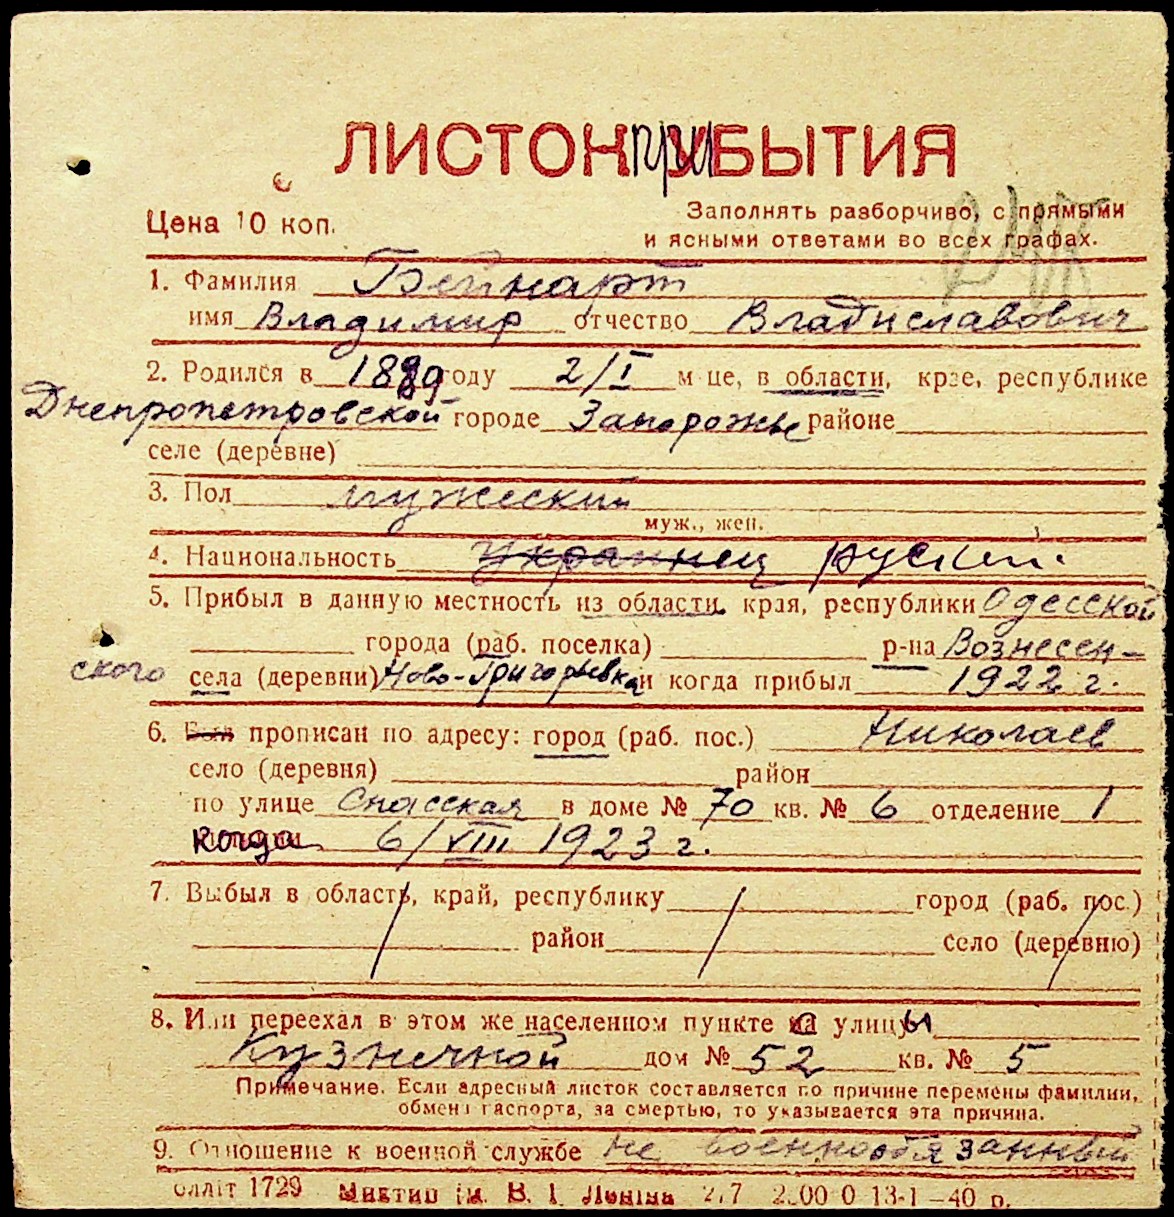 ЛИСТОК при БЫТИЯ
Цена 10 коп.
Заполнять разборчиво, с прямыми
и ясными ответами во всех графах.
1. Фамилия Бейнарт
имя Владимир отчество Владиславович
2. Родился в 1889 году 2/I м-це, в области, крае, республике
Днепропетровской городе Запорожье районе
селе (деревне)
3. Пол мужеский
муж., жен.
4. Национальность Украинец руский.
5. Прибыл в данную местность из области, края, республики Одесской
города (раб. поселка) р-на Вознесен-
ского села (деревни) Ново-Григорьевка и когда прибыл 1922 г.
6. прописан по адресу: город (раб. пос.) Николаев
село (деревня) район
по улице Спасская в доме № 70 кв. № 6 отделение 1
когда 6/VIII 1923 г.
7. Выбыл в область, край, республику город (раб. пос.)
район село (деревню)
8. Или переехал в этом же населенном пункте с улицы
Кузнечной дом № 52 кв. № 5
Примечание. Если адресный листок составляется по причине перемены фамилии,
обмена паспорта, за смертью, то указывается эта причина.
9. Отношение к военной службе не военнообязанный
1729 ім. В. І. Леніна 13-1-40 р.